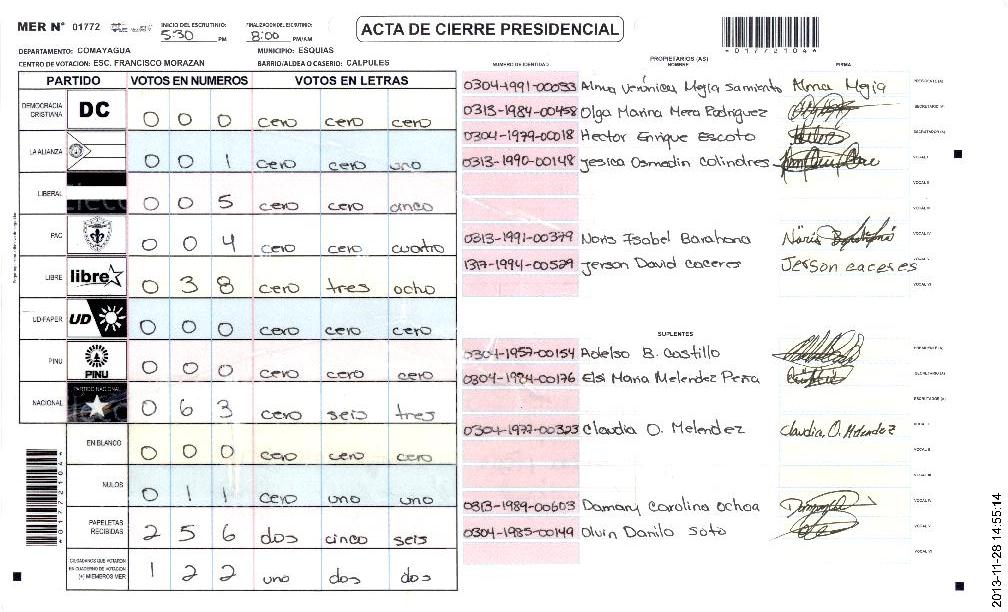 MER N° 01772 INICIO DEL ESCRUTINIO: 5:30 PM FINALIZACION DEL ESCRUTINIO: 8:00 PM/AM
ACTA DE CIERRE PRESIDENCIAL
*01772104*
DEPARTAMENTO: COMAYAGUA MUNICIPIO: ESQUIAS
CENTRO DE VOTACION: ESC. FRANCISCO MORAZAN BARRIO/ALDEA O CASERIO: CALPULES
PARTIDO VOTOS EN NUMEROS VOTOS EN LETRAS
DEMOCRACIA CRISTIANA DC 0 0 0 cero cero cero
LA ALIANZA 0 0 1 cero cero uno
LIBERAL 0 0 5 cero cero cinco
PAC 0 0 4 cero cero cuatro
LIBRE libre 0 3 8 cero tres ocho
UD-FAPER UD 0 0 0 cero cero cero
PINU PINU 0 0 0 cero cero cero
NACIONAL PARTIDO NACIONAL 0 6 3 cero seis tres
EN BLANCO 0 0 0 cero cero cero
NULOS 0 1 1 cero uno uno
PAPELETAS RECIBIDAS 2 5 6 dos cinco seis
CIUDADANOS QUE VOTARON EN CUADERNO DE VOTACION (+) MIEMBROS MER 1 2 2 uno dos dos
PROPIETARIOS (AS)
NUMERO DE IDENTIDAD NOMBRE FIRMA
0304-1991-00033 Alma Verónica Mejia Sarmiento Alma Mejia PRESIDENTE (A)
0313-1984-00458 Olga Marina Mera Rodriguez SECRETARIO (A)
0304-1979-00018 Hector Enrique Escoto ESCRUTADOR (A)
0313-1990-00148 Jesica Osmedin Colindres VOCAL I
VOCAL II
VOCAL III
0313-1991-00379 Noris Isabel Barahona Noris Barahona VOCAL IV
1317-1994-00529 Jerson David caceres Jerson caceres VOCAL V
VOCAL VI
SUPLENTES
0304-1957-00154 Adelso B. Castillo PRESIDENTE (A)
0304-1984-00176 Elsi Maria Melendez Peña SECRETARIO (A)
ESCRUTADOR (A)
0304-1977-00323 Claudia O. Melendez Claudia, O. Melendez VOCAL I
VOCAL II
VOCAL III
0313-1989-00603 Damary Carolina ochoa VOCAL IV
0304-1985-00149 Olvin Danilo Soto VOCAL V
VOCAL VI
*01772104*
2013-11-28 14:55:14